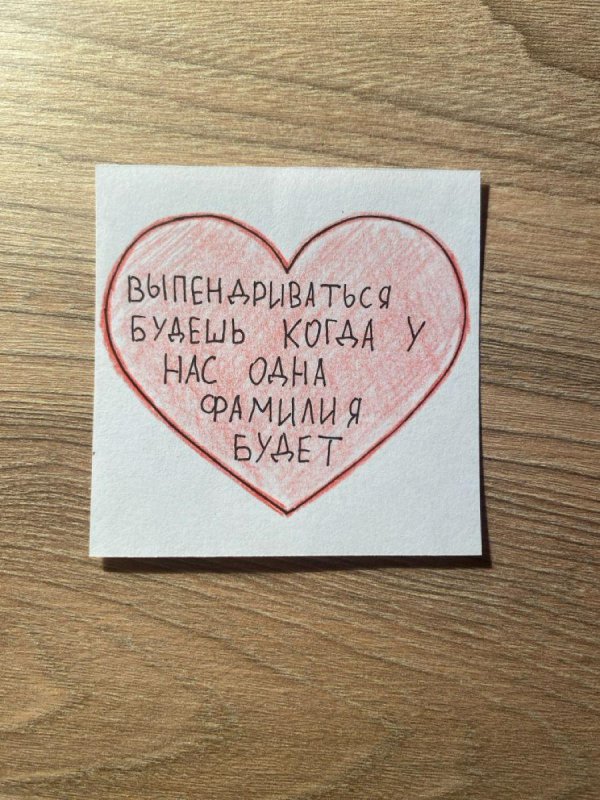 ВЫПЕНДРИВАТЬСЯ
БУДЕШЬ КОГДА У
НАС ОДНА
ФАМИЛИЯ
БУДЕТ